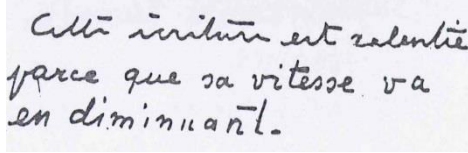 Cette écriture est ralentie
parce que sa vitesse va
en diminuant.